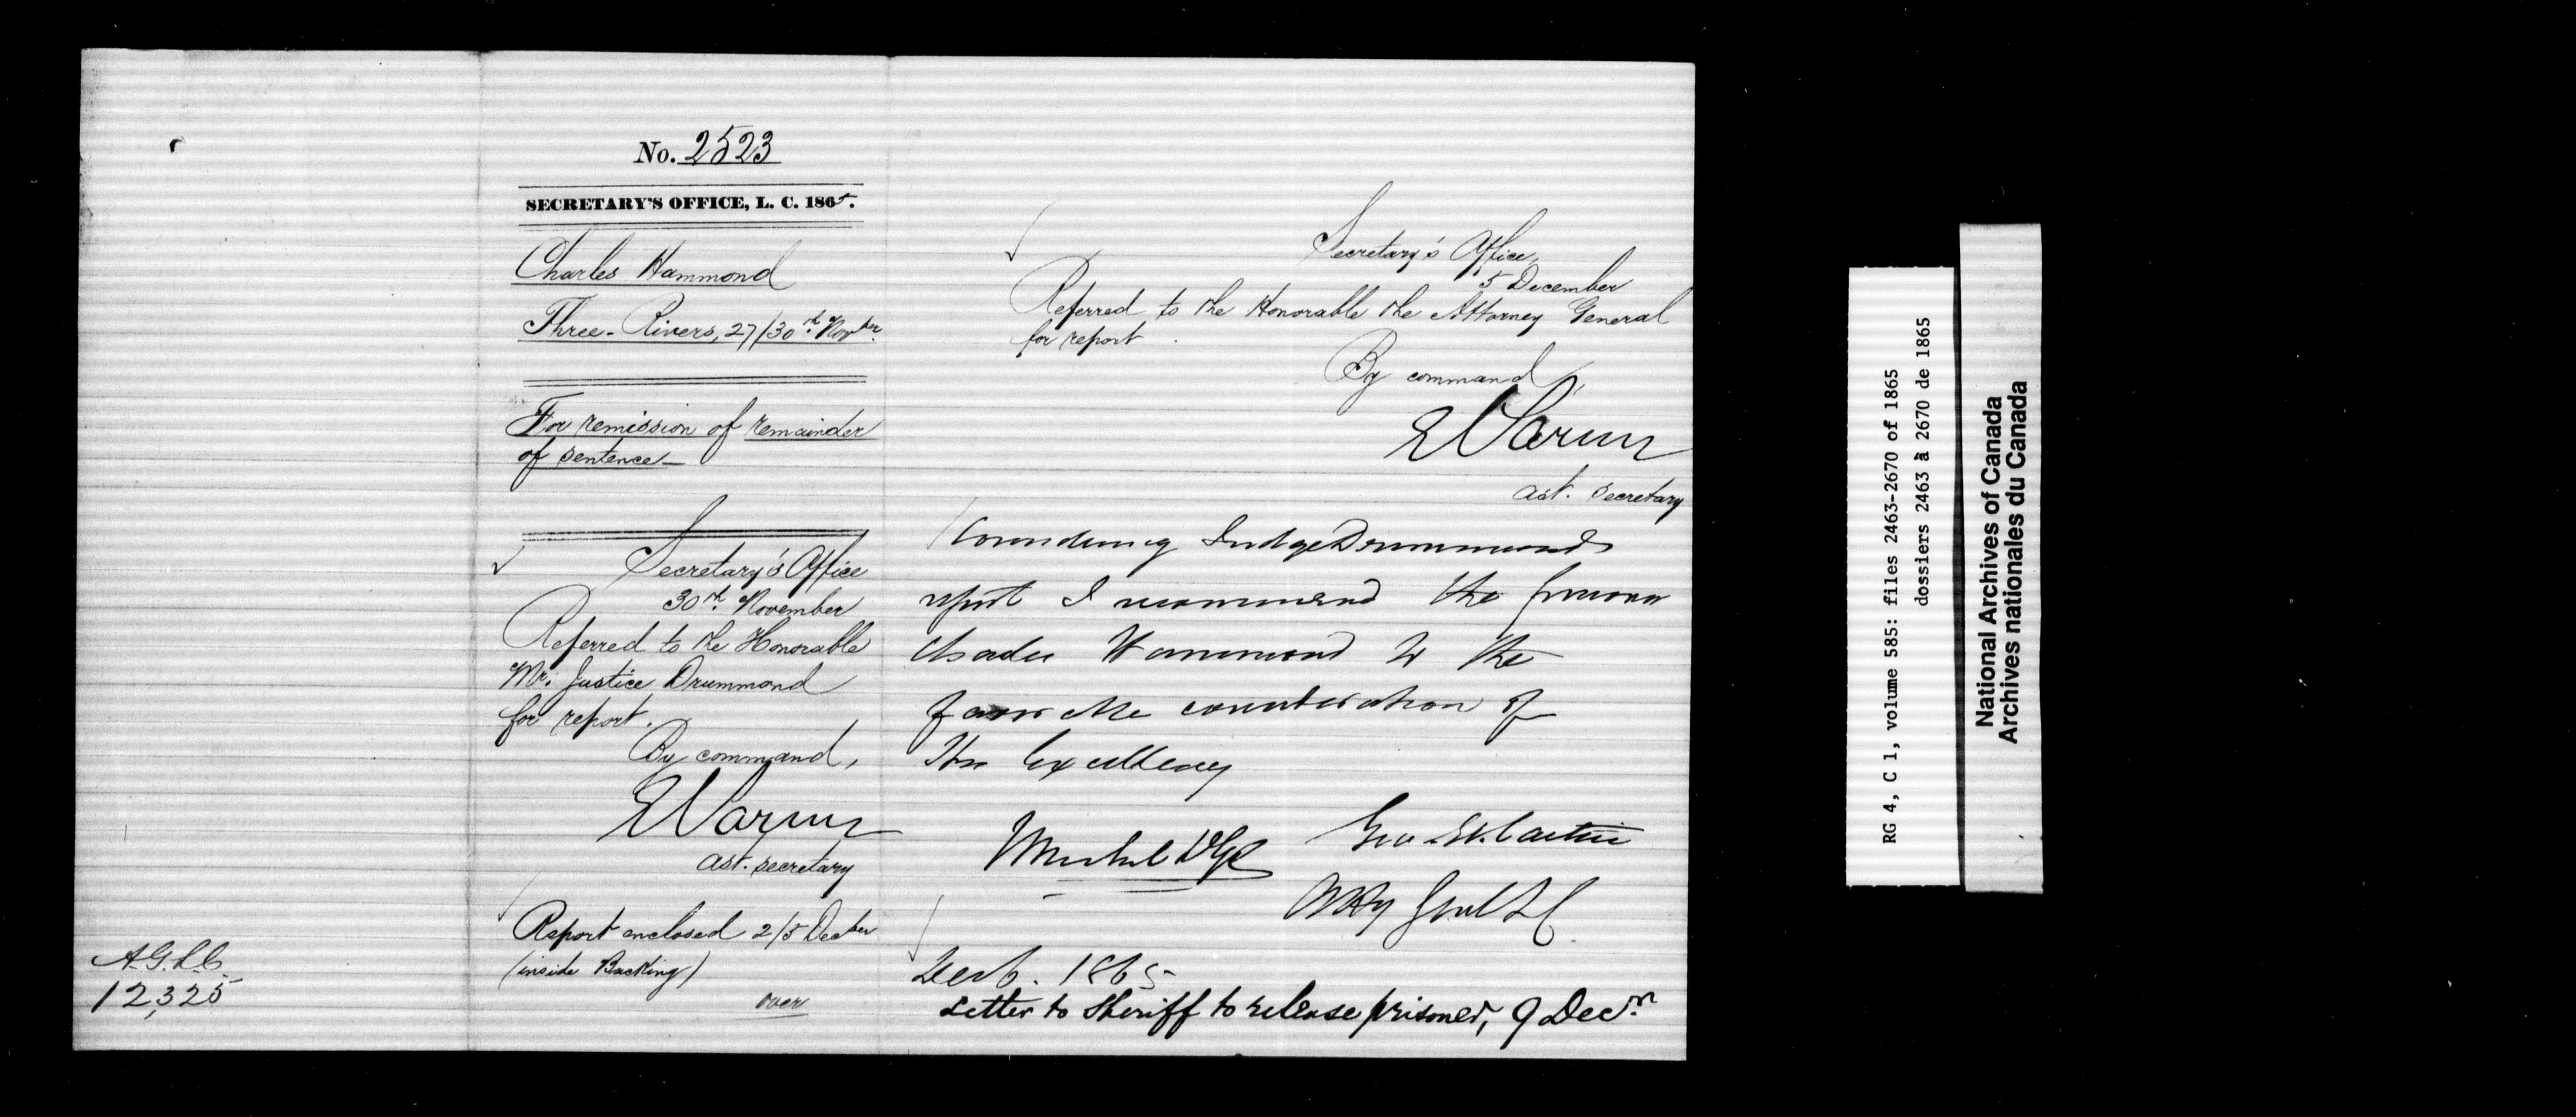 No. 2523
SECRETARY'S OFFICE, L. C. 1865.
Charles Hammond
Three-Rivers, 27/30th Novber.
For remission of remainder
of sentence
Secretary's Office
30th November
Referred to the Honorable
Mr. Justice Drummond
for report.
By command,
ast. secretary
Report enclosed 2/5 Decber
(inside Backing)
over
A.G.L.C.
12,325
Secretary's Office,
5 December
Referred to the Honorable the Attorney General
for report
By command,
ast. secretary
Considering Judge Drummonds
report I recommend the prisoner
Charles Hammond to the
favorable consideration of
His Excellency
Geo. Et. Cartier
1865
Letter to Sheriff to release prisoner, 9 Decr.
RG 4, C 1, volume 585: files 2463-2670 of 1865
dossiers 2463 à 2670 de 1865
National Archives of Canada
Archives nationales du Canada